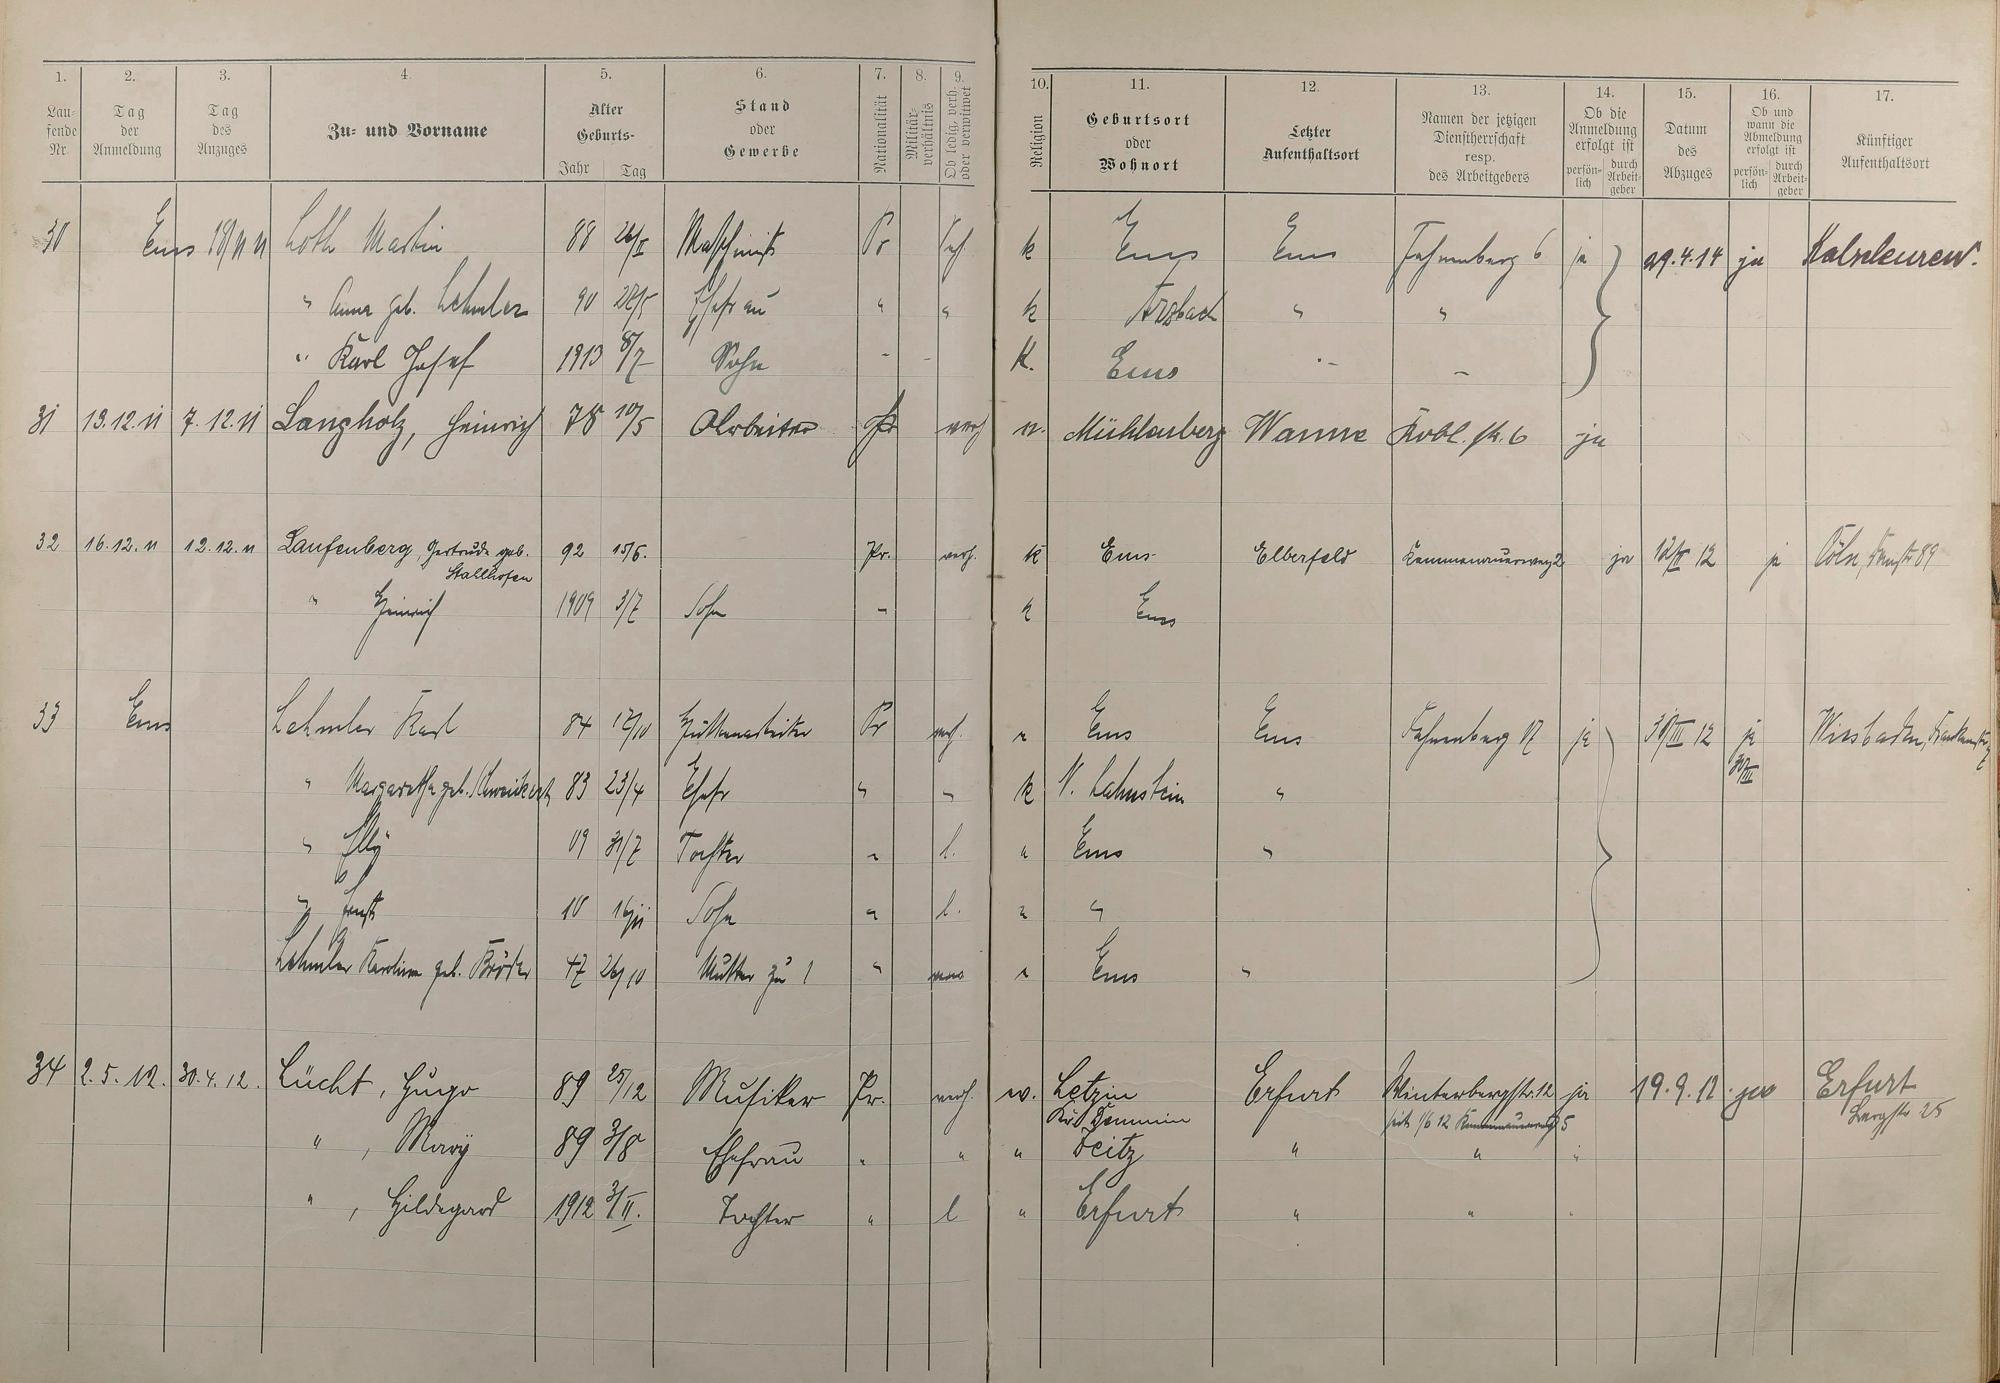 1. 2. 3. 4. 5. 6. 7. 8. 9. 10. 11. 12. 13. 14. 15. 16. 17.
Lau-
fende
Nr.
Tag
der
Anmeldung
Tag
des
Anzuges
Zu- und Vorname
Alter
Geburts-
Jahr Tag
Stand
oder
Gewerbe
Nationalität
Militär-
verhältnis
Ob ledig, verh.
oder verwitwet
Religion
Geburtsort
oder
Wohnort
Letzter
Aufenthaltsort
Namen der jetzigen
Dienstherrschaft
resp.
des Arbeitgebers
Ob die
Anmeldung
erfolgt ist
persön-
lich
durch
Arbeit-
geber
Datum
des
Abzuges
Ob und
wann die
Abmeldung
erfolgt ist
persön-
lich
durch
Arbeit-
geber
Künftiger
Aufenthaltsort
30 Ems Loth Martin 88 Maschinist Pr k Ems Ems Fahnenberg 6 ja 29.4.14 ja
" Anna geb. Lehmler 90 Ehefrau " " k Arzbach " "
" Karl Josef 1913 8/7 Sohn - - K. Ems - -
31 13.12.11 7.12.11 Langholz, Heinrich 78 10/5 Arbeiter Pr verh Mühlenberg Wanne Kobl. str. 6 ja
32 16.12.11 12.12.11 Laufenberg, Gertrude geb. 92 15/6. Pr. verh. k Ems Elberfeld Kemmenauerweg 2 ja 12 ja Cöln, 89
Stallhofen
" Heinrich 1909 3/7 Sohn - k Ems
33 Ems Lehmler Karl 84 12/10 Hüttenarbeiter Pr verh. Ems Ems Fahnenberg 17 ja III 12 ja Wiesbaden,
" Margaretha geb. Schweickert 83 23/4 Ehefr " " k N. Lahnstein " III
" Elly 09 31/7 Tochter " l. " Ems "
" Ernst 10 Sohn " l. " "
Lehmler Karoline geb. Bröder 47 26/10 Mutter zu 1 " Ems "
34 2.5.12. 30.4.12. Lücht, Hugo 89 25/12 Musiker Pr. verh. Letzin Erfurt Winterbergstr. 12 ja 19.9.12. ja Erfurt
Kr. Demmin seit 1/6 12 Kemmenauerweg 5 Bergstr 25
" , Mary 89 3/8 Ehefrau " " " Zeitz " " "
" , Hildegard 1912 3/II. Tochter " l " Erfurt " " "